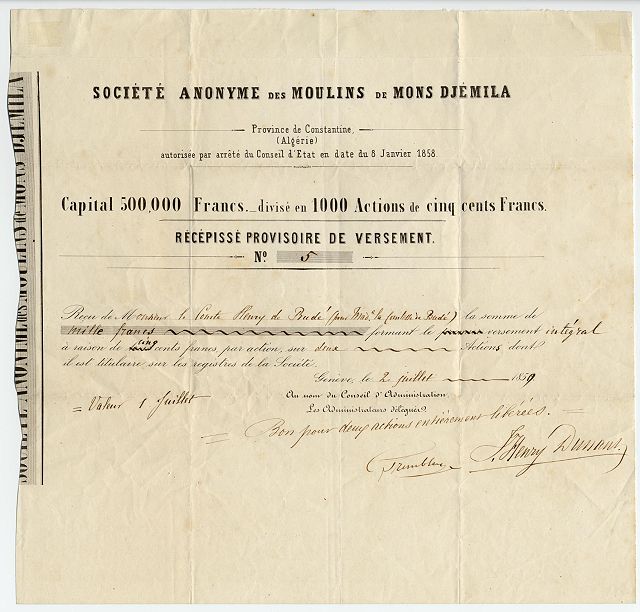 SOCIÉTÉ ANONYME DES MOULINS DE MONS DJÉMILA
SOCIÉTÉ ANONYME DES MOULINS DE MONS DJÉMILA
Province de Constantine,
(Algérie)
autorisée par arrêté du Conseil d'Etat en date du 6 Janvier 1858.
Capital 500,000 Francs._divisé en 1000 Actions de cinq cents Francs.
RÉCÉPISSÉ PROVISOIRE DE VERSEMENT.
No 5
Recu de Monsieur le Comte Henry de Budé (pour Mad.e la Comtesse de Budé) la somme de
mille francs formant le versement intégral
à raison de cinq cents francs, par action, sur deux Actions dont
il est titulaire, sur les registres de la Société.
Genève, le 2 juillet 1859
= Valeur 1 Juillet
Au nom du Conseil d'Administration.
Les Administrateurs délégués.
= Bon pour deux actions entièrement libérées. =
J. Henry Dunant.